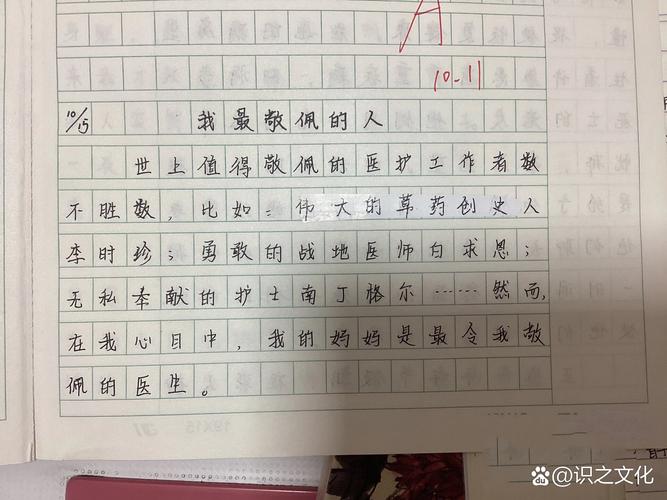 A
10-11
10/15 我最敬佩的人
世上值得敬佩的医护工作者数
不胜数，比如：伟大的草药创史人
李时珍；勇敢的战地医师白求恩；
无私奉献的护士南丁格尔……然而，
在我心目中，我的妈妈是最令我敬
佩的医生。
19X15
识之文化